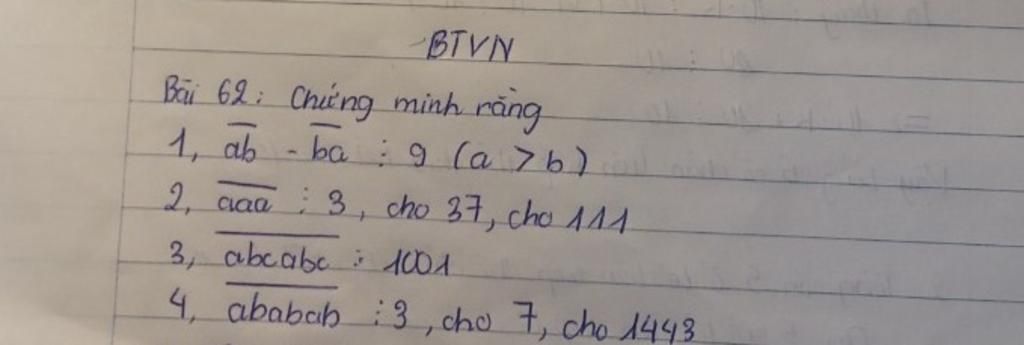 BTVN
Bài 62: Chứng minh rằng
1, a͞b - b͞a ⋮ 9 (a > b)
2, a͞a͞a ⋮ 3, cho 37, cho 111
3, a͞b͞c͞a͞b͞c ⋮ 1001
4, a͞b͞a͞b͞a͞b ⋮ 3, cho 7, cho 1443